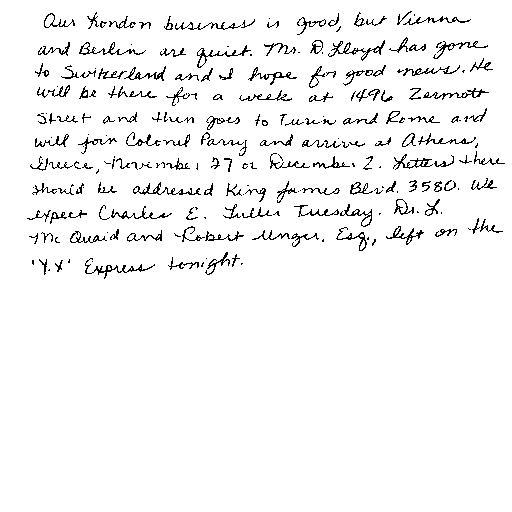 Our London business is good, but Vienna
and Berlin are quiet. Mr. D. Lloyd has gone
to Switzerland and I hope for good news. He
will be there for a week at 1496 Zermott
Street and then goes to Turin and Rome and
will join Colonel Parry and arrive at Athens,
Greece, November 27 or December 2. Letters there
should be addressed King James Blvd. 3580. We
expect Charles E. Fuller Tuesday. Dr. L.
Mc Quaid and Robert Unger, Esq., left on the
'Y.X' Express tonight.